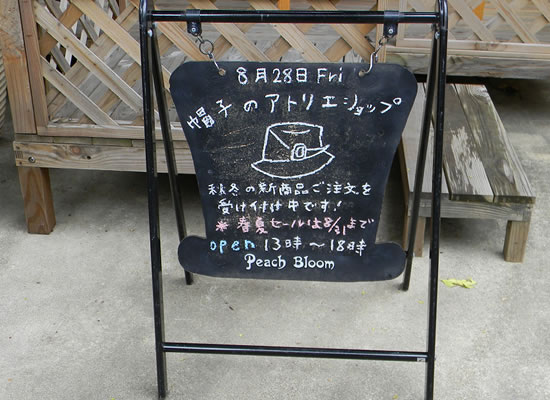 8月28日 Fri
帽子のアトリエショップ
秋冬の新商品ご注文を
受け付け中です!
※春夏セールは8/31まで
open 13時～18時
Peach Bloom